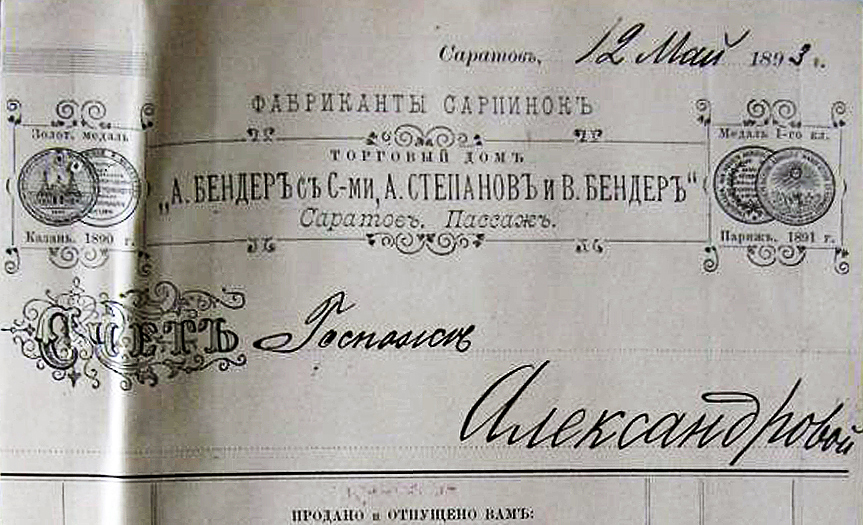 Саратовъ, 12 Май 1893 г.
ФАБРИКАНТЫ САРПИНОКЪ
Золот. медаль
Казань. 1890 г.
ТОРГОВЫЙ ДОМЪ
„А. БЕНДЕРЪ съ С-ми, А. СТЕПАНОВЪ и В. БЕНДЕРЪ“
Саратовъ, Пассажъ.
Медаль 1-го кл.
Парижъ. 1891 г.
Счетъ Госпожѣ
Александровой
ПРОДАНО и ОТПУЩЕНО ВАМЪ: